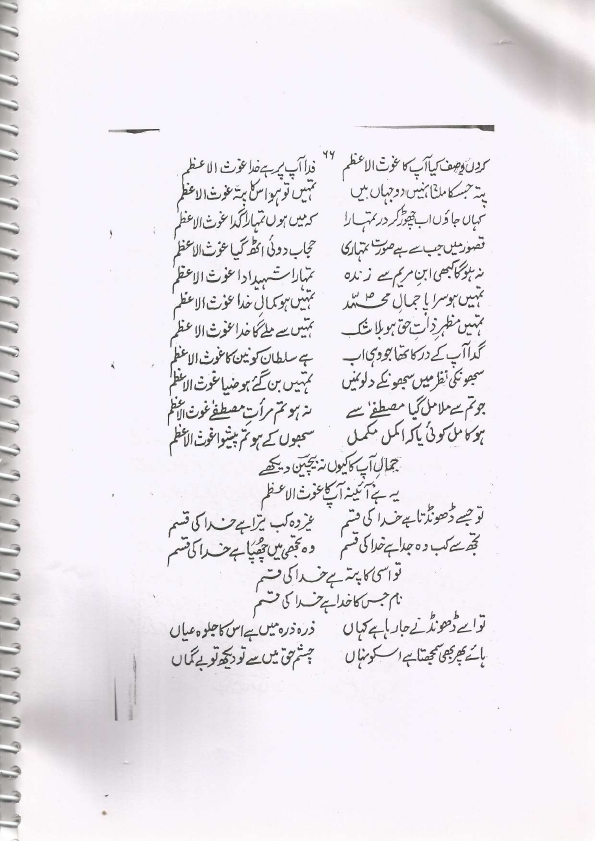 ۶۶
کروں وصف کیا آپ کا غوث الاعظم فدا آپ پر ہے خدا غوث الاعظم
پتہ جسکا ملتا نہیں دو جہاں میں تمہیں تو ہو اسکا پتہ غوث الاعظم
کہاں جاؤں اب چھوڑ کر در تمہارا کہ میں ہوں تمہارا گدا غوث الاعظم
تصور میں جب سے ہے صورت تمہاری حجاب دوئی اٹھ گیا غوث الاعظم
نہ ہوگا کبھی ابن مریم سے زندہ تمہارا شہید ادا غوث الاعظم
تمہیں ہو سراپا جمالِ محمد تمہیں ہو کمالِ خدا غوث الاعظم
تمہیں مظہر ذاتِ حق ہو بلا شک تمہیں سے ملے گا خدا غوث الاعظم
گدا آپ کے در کا تھا جو وہی اب ہے سلطان کونین کا غوث الاعظم
سبھونکی نظر میں سبھونکے دلونمیں تمہیں بن گئے ہو ضیا غوث الاعظم
جو تم سے ملا مل گیا مصطفےٰ سے نہ ہو تم مرأتِ مصطفےٰ غوث الاعظم
ہو کامل کوئی یا کہ اکمل مکمل سبھوں کے ہو تم پیشوا غوث الاعظم
جمالِ آپ کا کیوں نہ بیچین دیکھے
یہ ہے آئینہ آپ کا غوث الاعظم
تو جسے ڈھونڈتا ہے خدا کی قسم غیر وہ کب ترا ہے خدا کی قسم
تجھ سے کب وہ جدا ہے خدا کی قسم وہ تجھی میں چھپا ہے خدا کی قسم
تو اسی کا پتہ ہے خدا کی قسم
نام جس کا خدا ہے خدا کی قسم
تو اسے ڈھونڈنے جا رہا ہے کہاں ذرہ ذرہ میں ہے اس کا جلوہ عیاں
ہائے پھر بھی سمجھتا ہے اسکو نہاں چشم حق میں سے تو دیکھ تو بے گماں